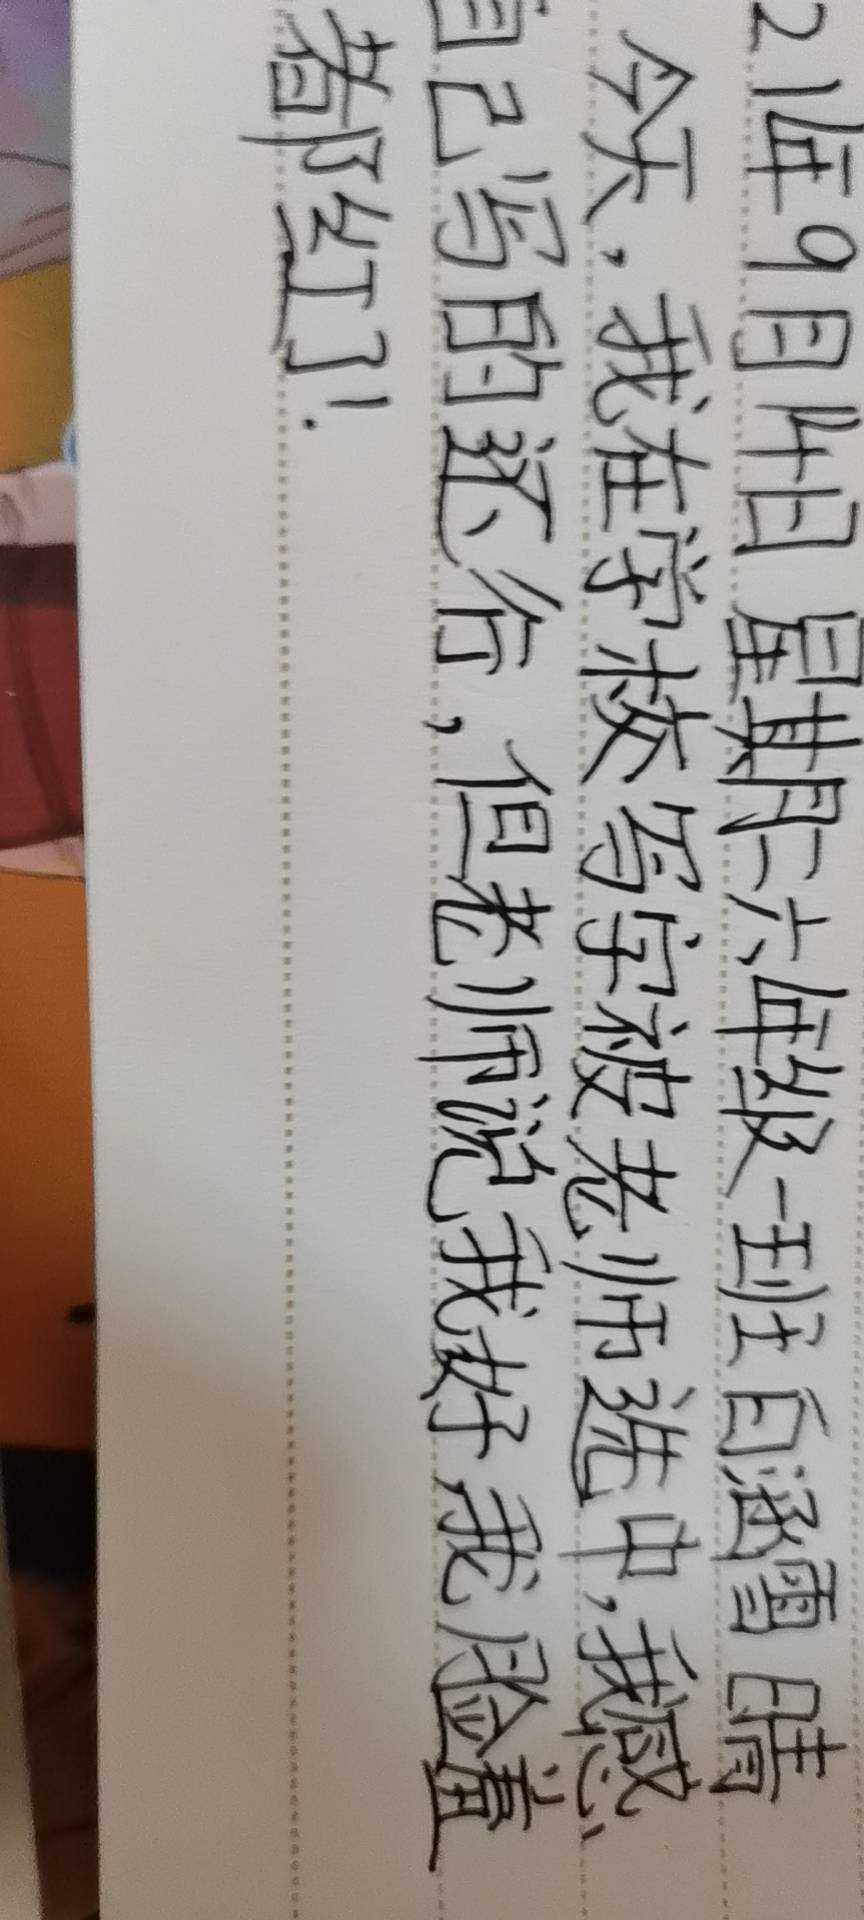 21年9月14日 星期二六年级一班 白涵雪 晴
今天，我在学校写字被老师选中，我感
自己写的还行，但老师说我好我脸直
都红了！